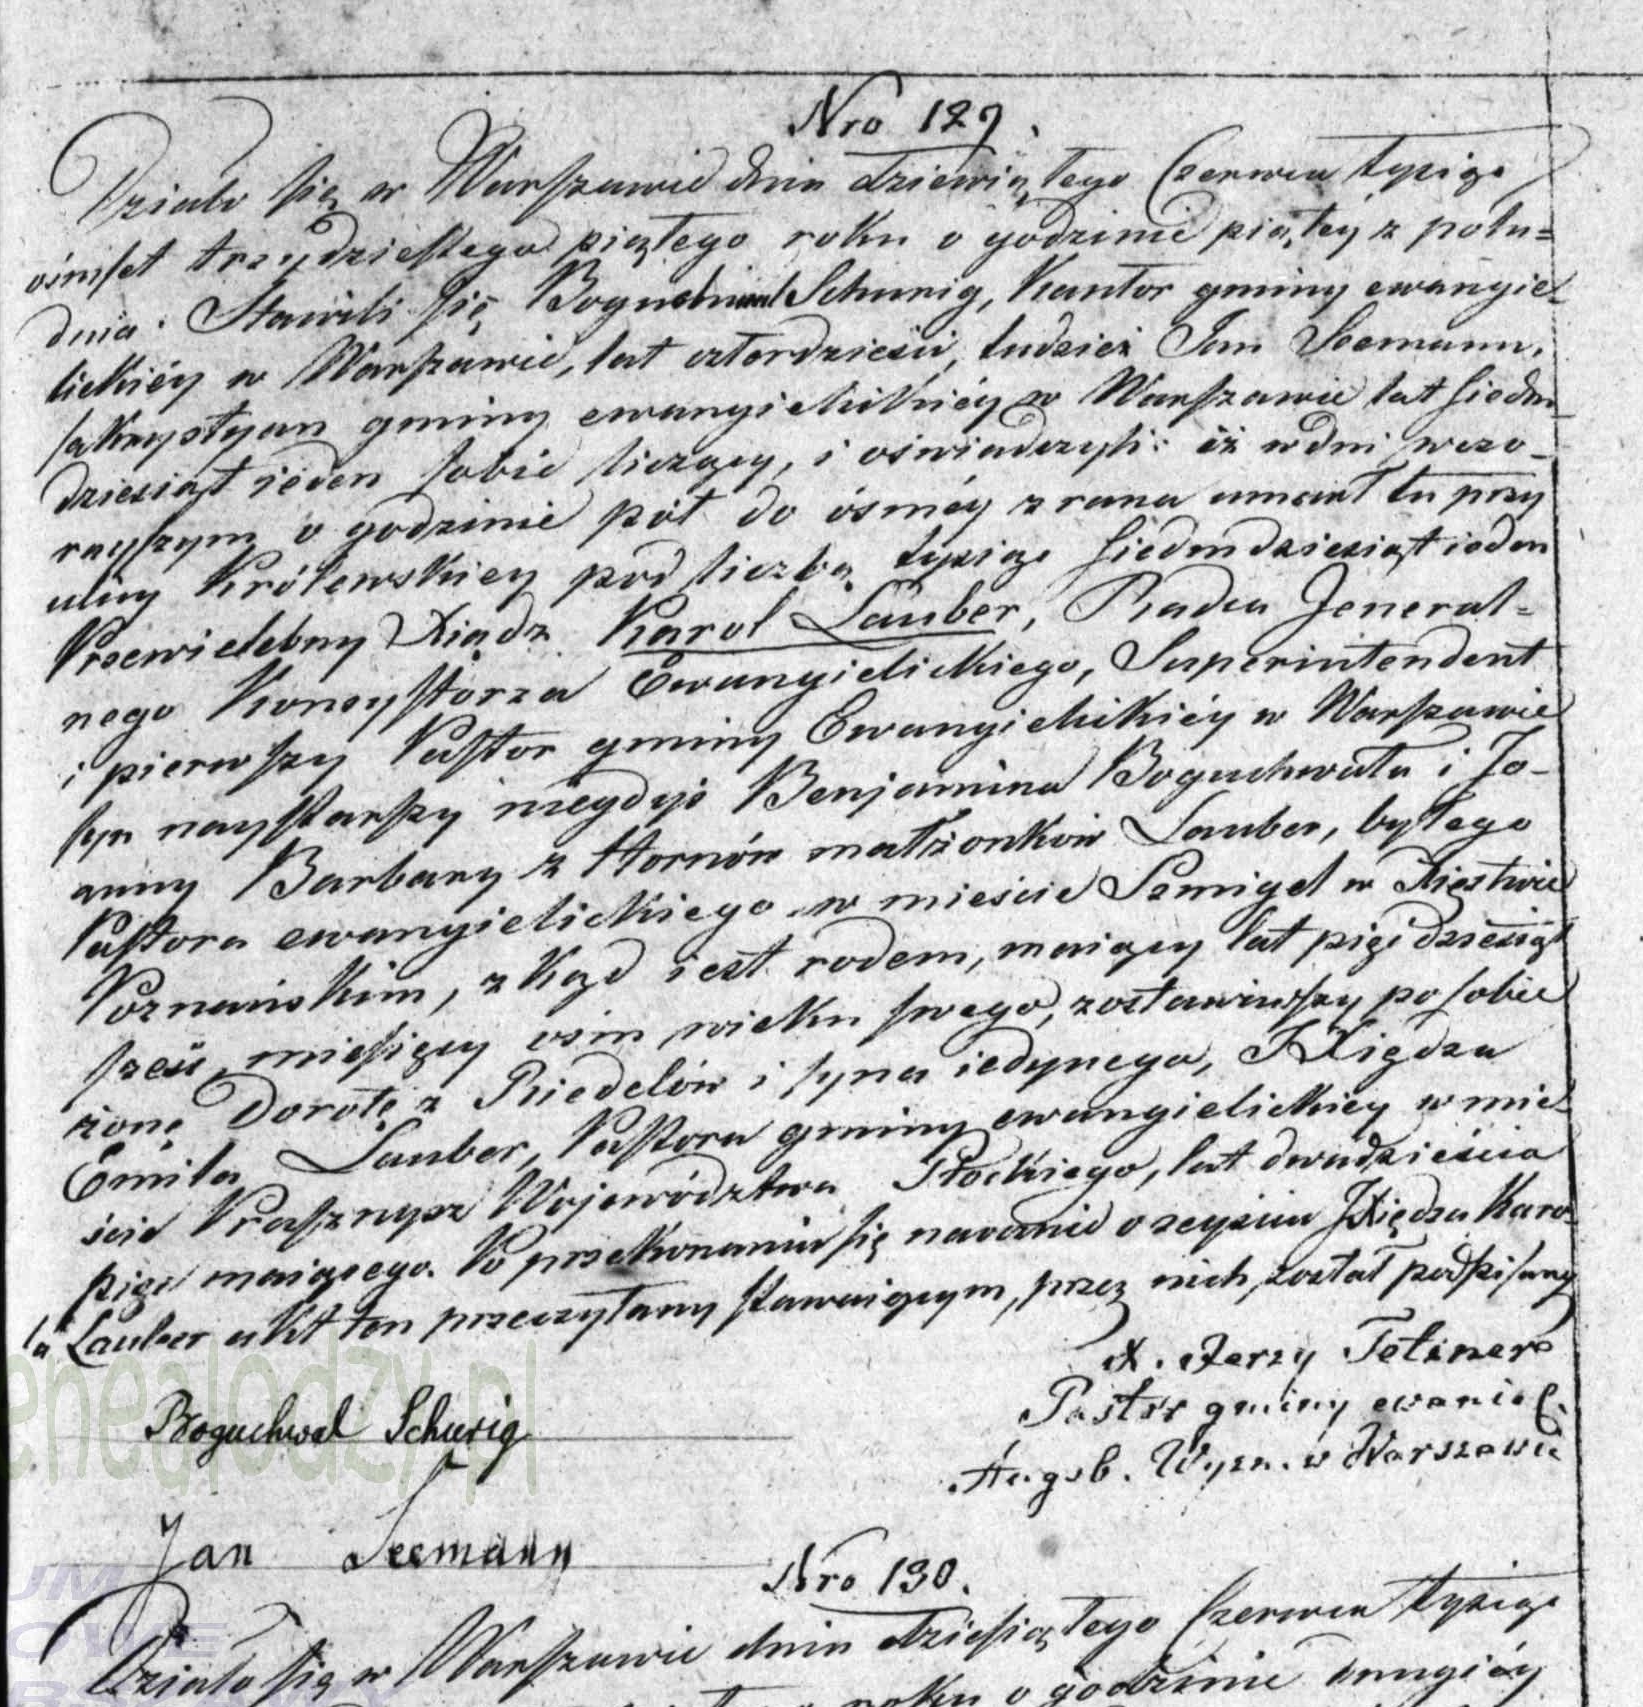 Nro 129.
Działo się w Warszawie dnia dziewiątego Czerwca tysiąc
ośmset trzydziestego piątego roku o godzinie piątéy z połu=
dnia. Stawili się Boguchwał Schurig, Kantor gminy ewangie=
lickiéy w Warszawie, lat czterdzieści, tudzież Jan Seemann,
sakrystyan gminy ewangielickiéy w Warszawie lat siedm
dziesiąt ieden sobie liczący, i oświadczyli: iż w dniu wczo-
rayszym o godzinie pół do ósméy z rana umarł tu przy
ulicy Królewskiey pod liczbą tysiąc siedmdziesiąt ieden
Przewielebny Xiądz Karol Lauber, Radca Jeneral=
nego Konsystorza Ewangielickiego, Superintendent
i pierwszy Pastor gminy Ewangielickiéy w Warszawie
syn naystarszy niegdyś Benjamina Boguchwała i Jo-
anny Barbary z Hornów małżonków Lauber, byłego
Pastora ewangielickiego w mieście Szmigel w Xięstwie
Poznańskim, zkąd iest rodem, maiący lat pięćdziesiąt
sześć, miesięcy ośm wieku swego, zostawiwszy po sobie
żonę Dorotę z Riedelów i syna iedynego, Xiędza
Emila Lauber, Pastora gminy ewangielickiey w mie=
ście Prasznysz Województwa Płockiego, lat dwadzieścia
pięć maiącego. Po przekonaniu się naocznie o zeyściu Xiędza Karo-
la Lauber akt ten przeczytany stawaiącym, przez nich został podpisany
X. Jerzy Tetzner
Pastor gminy ewaniel.
Augsb. Wyzn. w Warszawie
Boguchwal Schurig
Jan Seemann
Nro 130.
Działo się w Warszawie dnia dziesiątego Czerwca tysiąc
roku o godzinie drugiéy
enealodzy.pl